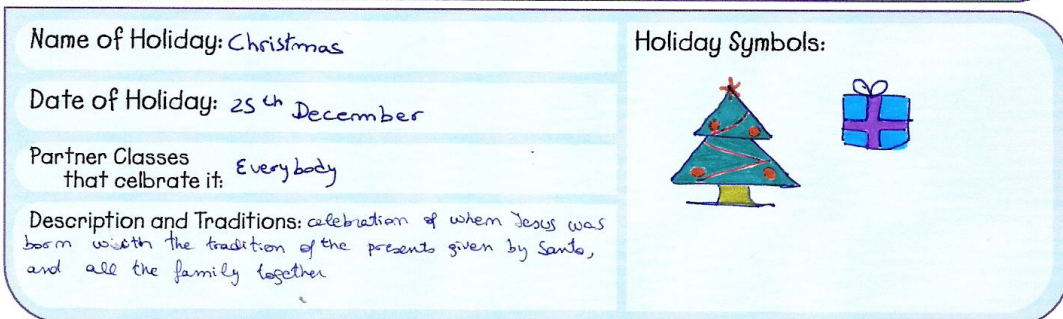 Name of Holiday: Christmas
Date of Holiday: 25th December
Partner Classes
that celbrate it: Everybody
Description and Traditions: celebration of when Jesus was
born wicth the tradition of the presents given by Santa,
and all the family together
Holiday Symbols: